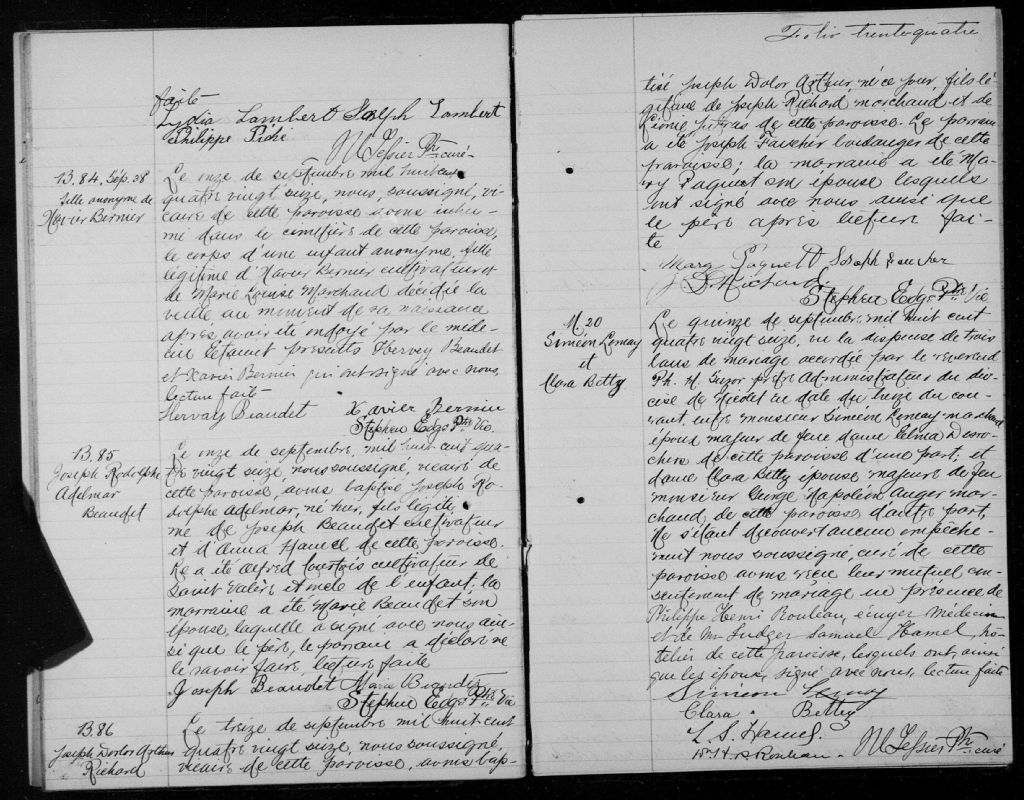 faite
Lydia Lambert Joseph Lambert
Philippe Piché
M Tessier Ptre curé
B. 84, Sép. 38
fille anonyme de
Xavier Bernier
Le onze de septembre mil huit cent
quatre vingt seize, nous, soussigné, vi-
caire de cette paroisse avons inhu-
mé dans le cimetière de cette paroisse,
le corps d'une enfant anonyme, fille
légitime d'Xavier Bernier cultivateur et
de Marie Louise Marchand décédée la
veille au moment de sa naissance
après avoir été ondoyé par le méde-
cin étaient présents Hervey Beaudet
et Xavier Bernier qui ont signé avec nous,
lecture faite
Hervary Beaudet Xavier Bernier
Stephen Edge Ptre Vic.
B. 85
Joseph Rodolphe
Adelmar
Beaudet
Le onze de septembre, mil huit cent qua-
tre vingt seize, nous, soussigné, vicaire de
cette paroisse, avons baptisé Joseph Ro-
dolphe Adelmar, né hier, fils légiti-
me de Joseph Beaudet cultivateur
et d'Anna Hamel de cette paroisse.
Le a été Alfred Courtois cultivateur de
Saint Valère et oncle de l'enfant; la
marraine a été Marie Beaudet son
épouse, laquelle a signé avec nous ain-
si que le père, le parrain a déclaré ne
le savoir faire, lecture faite
Joseph Beaudet Marie Beaudet
Stephen Edge Ptre Vic
B. 86
Joseph Dorlor Arthur
Richard
Le treize de septembre mil huit cent
quatre vingt seize, nous, soussigné,
vicaire de cette paroisse, avons bap-
Folio trente quatre
tisé Joseph Dolor Arthur, né ce jour, fils lé-
gitime de Joseph Richard marchand et de
de cette paroisse. Le parrain
a été Joseph Faucher boulanger de cette
paroisse; la marraine a été Ma-
ry Paquet son épouse lesquels
ont signé avec nous ainsi que
le père après lecture fai-
te
Mary Paquett Joseph Faucher
J D Richard
Stephen Edge Ptre Vic
M. 20
Siméon Lemay
et
Clara Betty
Le quinze de septembre mil huit cent
quatre vingt seize, vu la dispense de trois
bans de mariage accordée par le révérend
Ph. H. Suzor prêtre Administrateur du dio-
cèse de Nicolet en date du treize du cou-
rant, entre monsieur Siméon Lemay marchand
époux majeur de feue dame Desro-
chers de cette paroisse d'une part, et
dame Clara Betty épouse majeure de feu
monsieur George Napoléon Auger mar-
chand, de cette paroisse d'autre part,
ne s'étant découvert aucun empêche-
ment nous soussigné, curé de cette
paroisse avons reçu leur mutuel con-
sentement de mariage en présence de
Philippe Henri Rouleau, écuyer Médecin
et de Mr Ludger Samuel Hamel, hô-
telier de cette paroisse, lesquels ont, ainsi
que les époux, signé avec nous, lecture faite
Simeon Lemay
Clara Bettey
L. S. Hamel
Rouleau M Tessier Ptre curé